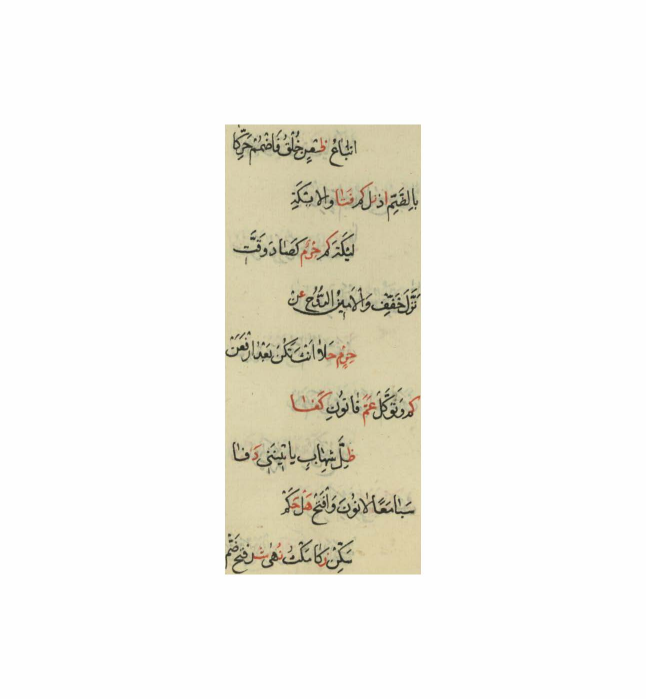 اتباع ظعن خلق فاضمم حركا
بالضم اذ نل كم فتى والايكة
ليكة كم حرم كصاد وقت
نزل خفف والامين الروح عن
حرم حلا انث تكن بعد ارفعن
كم وتوكل عم فا نون كفا
ظل شهاب ياتينني دفا
سبا معا لا نون وافتح هل حكم
سكن زكا مكث نهى شد فتح ضم